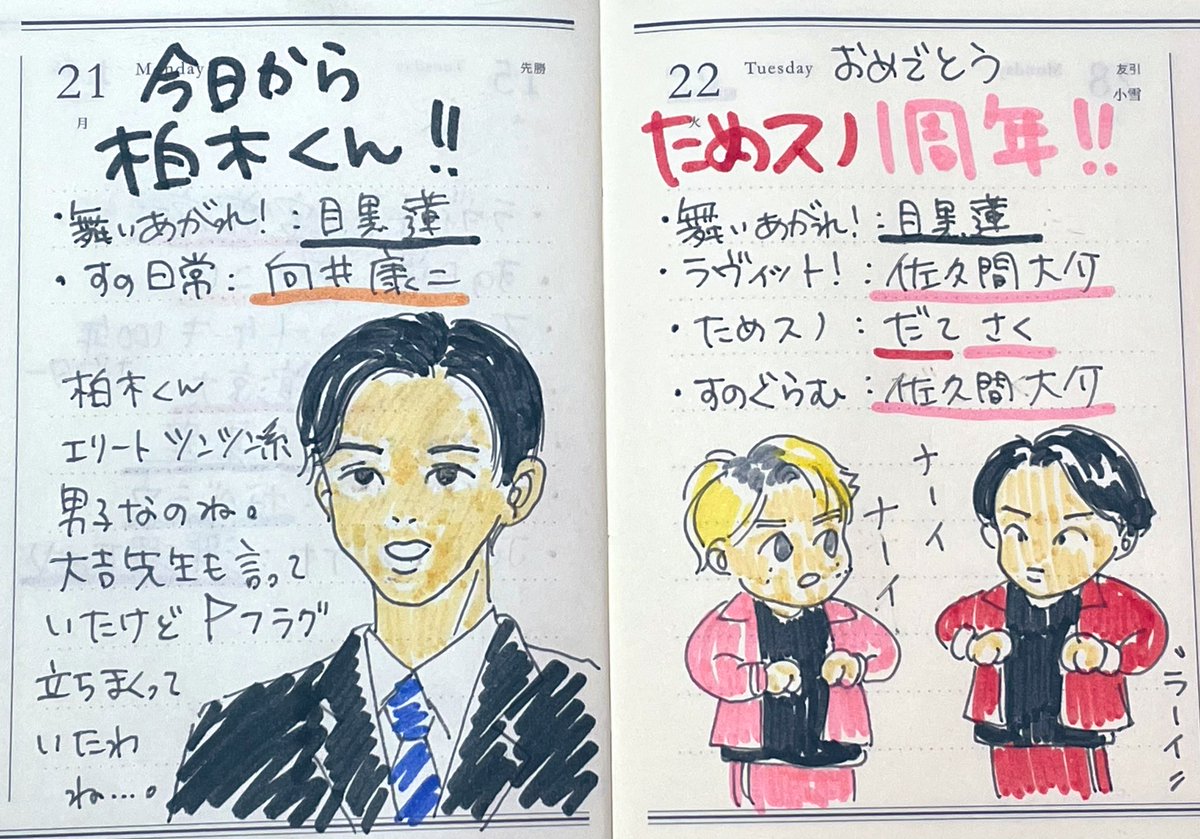 21
Monday
先勝
月
今日から
柏木くん!!
・舞いあがれ!:目黒蓮
・すの日常:向井康二
柏木くん
エリートツンツン系
男子なのね。
大吉先生も言って
いたけどPフラグ
立ちまくって
いたわ
ね…。
22
Tuesday
友引
小雪
火
おめでとう
ためスノ1周年!!
・舞いあがれ!:目黒蓮
・ラヴィット!:佐久間大介
・ためスノ:だてさく
・すのぐらむ:佐久間大介
ナーイ
ナーイ
ラーイ